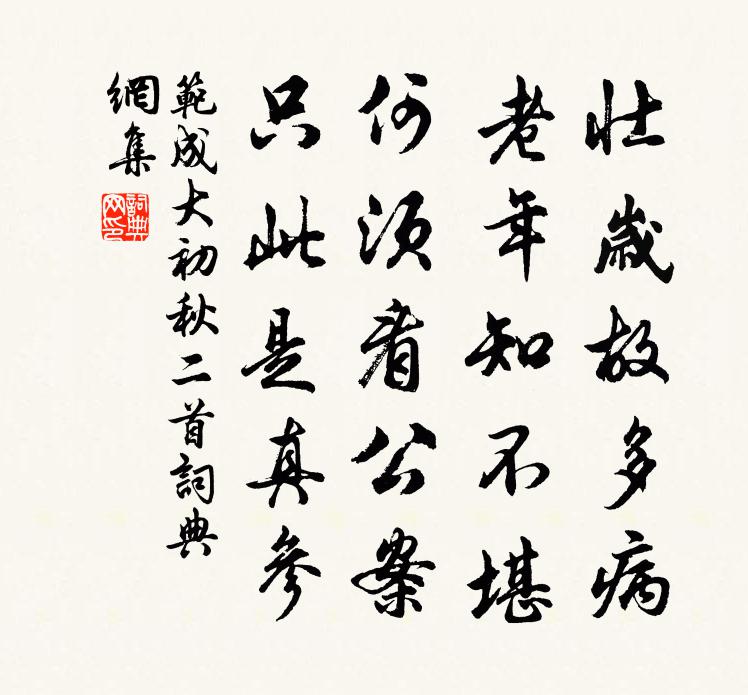 壮歲故多病
老年知不堪
何須看公案
只此是真參
範成大初秋二首詞典
網集
詞典
网印